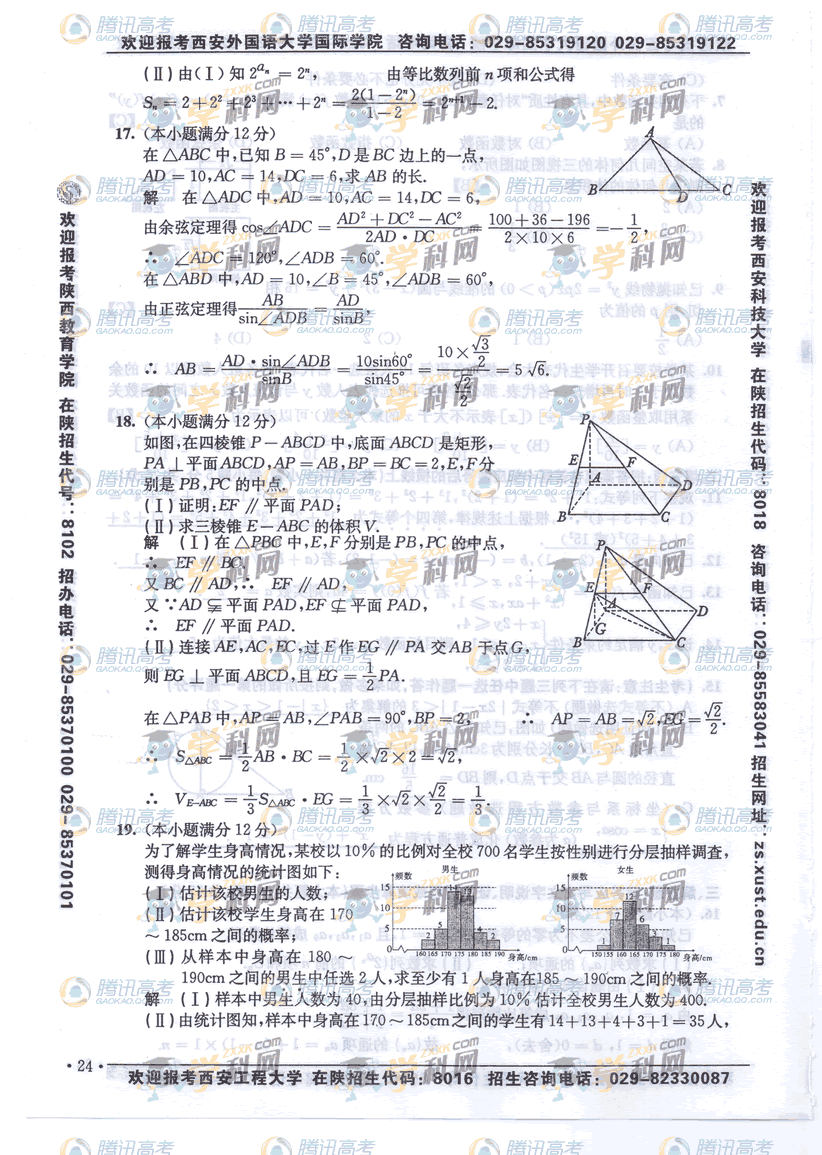 欢迎报考西安外国语大学国际学院 咨询电话：029-85319120 029-85319122
(Ⅱ)由(Ⅰ)知 2^{a_n} = 2^n, 由等比数列前 n 项和公式得
S_n = 2+2²+2³+···+2^n = 2(1-2^n)/(1-2) = 2^{n+1}-2.
17. (本小题满分 12 分)
在 △ABC 中,已知 B = 45°,D 是 BC 边上的一点,
AD = 10,AC = 14,DC = 6,求 AB 的长.
A
B D C
解 在 △ADC 中,AD = 10,AC = 14,DC = 6,
由余弦定理得 cos∠ADC = (AD²+DC²-AC²)/(2AD·DC) = (100+36-196)/(2×10×6) = -1/2,
∴ ∠ADC = 120°,∠ADB = 60°.
在 △ABD 中,AD = 10,∠B = 45°,∠ADB = 60°,
由正弦定理得 AB/sin∠ADB = AD/sinB,
∴ AB = AD·sin∠ADB/sinB = 10sin60°/sin45° = (10×√3/2)/(√2/2) = 5√6.
18. (本小题满分 12 分)
如图,在四棱锥 P-ABCD 中,底面 ABCD 是矩形,
PA⊥平面 ABCD,AP = AB,BP = BC = 2,E,F 分
别是 PB,PC 的中点.
(Ⅰ)证明:EF ∥ 平面 PAD;
(Ⅱ)求三棱锥 E-ABC 的体积 V.
P
E F
A D
B C
解 (Ⅰ)在 △PBC 中,E,F 分别是 PB,PC 的中点,
∴ EF ∥ BC.
又 BC ∥ AD,∴ EF ∥ AD,
又 ∵AD ⫋ 平面 PAD,EF ⊄ 平面 PAD,
∴ EF ∥ 平面 PAD.
(Ⅱ)连接 AE,AC,EC,过 E 作 EG ∥ PA 交 AB 于点 G,
则 EG⊥平面 ABCD,且 EG = 1/2 PA.
P
E F
A D
G
B C
在 △PAB 中,AP = AB,∠PAB = 90°,BP = 2, ∴ AP = AB = √2,EG = √2/2.
∴ S△ABC = 1/2 AB·BC = 1/2×√2×2 = √2,
∴ V_{E-ABC} = 1/3 S△ABC·EG = 1/3×√2×√2/2 = 1/3.
19. (本小题满分 12 分)
为了解学生身高情况,某校以 10% 的比例对全校 700 名学生按性别进行分层抽样调查,
测得身高情况的统计图如下:
(Ⅰ)估计该校男生的人数;
(Ⅱ)估计该校学生身高在 170
～185cm 之间的概率;
(Ⅲ) 从样本中身高在 180 ～
频数 男生
15
10
5
0
2 5 14 13 4 2
160 165 170 175 180 185 190 身高/cm
频数 女生
15
10
5
0
1 7 12 6 3 1
150 155 160 165 170 175 180 身高/cm
190cm 之间的男生中任选 2 人,求至少有 1 人身高在185 ～ 190cm 之间的概率.
解 (Ⅰ)样本中男生人数为 40,由分层抽样比例为 10% 估计全校男生人数为 400.
(Ⅱ)由统计图知,样本中身高在 170～185cm 之间的学生有 14+13+4+3+1 = 35 人,
·24·
欢迎报考西安工程大学 在陕招生代码：8016 招生咨询电话：029-82330087
欢迎报考陕西教育学院 在陕招生代号：8102 招办电话：029-85370100 029-85370101
欢迎报考西安科技大学 在陕招生代码：8018 咨询电话：029-85583041 招生网址：zs.xust.edu.cn
腾讯高考
GAOKAO.QQ.COM
学科网
ZXXK.COM